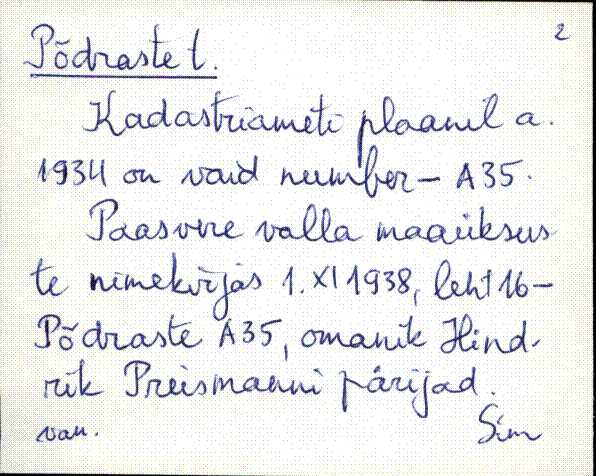 2
Põdraste t.
Kadastriameti plaanil a.
1934 on vaid number – A35.
Paasvere valla maaüksus
te nimekirjas 1. XI 1938, leht 16 –
Põdraste A35, omanik Hind-
rik Preismanni pärijad.
van. Sim